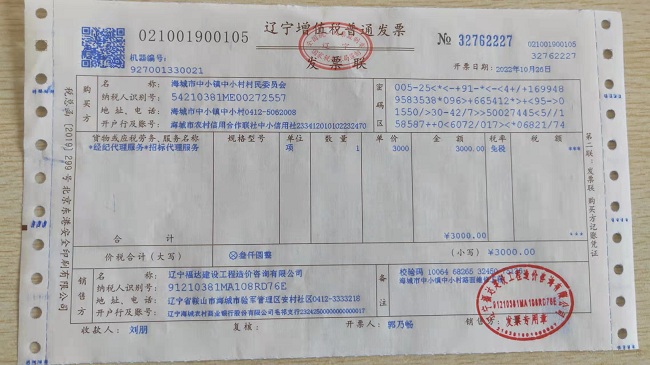 021001900105
辽宁增值税普通发票
发票联
№ 32762227
021001900105
32762227
机器编号:
927001330021
开票日期: 2022年10月26日
税总函〔2019〕299号北京东港安全印刷有限公司
购买方
名 称: 海城市中小镇中小村村民委员会
纳税人识别号: 54210381ME00272557
地址、电话: 海城市中小镇中小村0412-5062008
开户行及账号: 海城市农村信用合作联社中小信用社233412010102232470
密码区
005-25<*<-+91-*<-4+/+169948
9583538*096>+665412*>+<95->0
1550/>30-42/7>>50027445<5//1
58587++0<6072/017><*06821/74
货物或应税劳务、服务名称 规格型号 单位 数量 单价 金额 税率 税额
*经纪代理服务*招标代理服务 项 1 3000 3000.00 免税 ***
合计 ¥3000.00 ***
价税合计(大写) ⊗叁仟圆整 (小写) ¥3000.00
销售方
名 称: 辽宁福达建设工程造价咨询有限公司
纳税人识别号: 91210381MA108RD76E
地址、电话: 辽宁省鞍山市海城市验军管理区娄村社区0412-3333218
备注
校验码 10064 68265 32450
海城市中小镇中小村路面维修
收款人: 刘朋 复核: 开票人: 郭乃畅
91210381MA108RD76E
发票专用章
第二联:发票联 购买方记账凭证